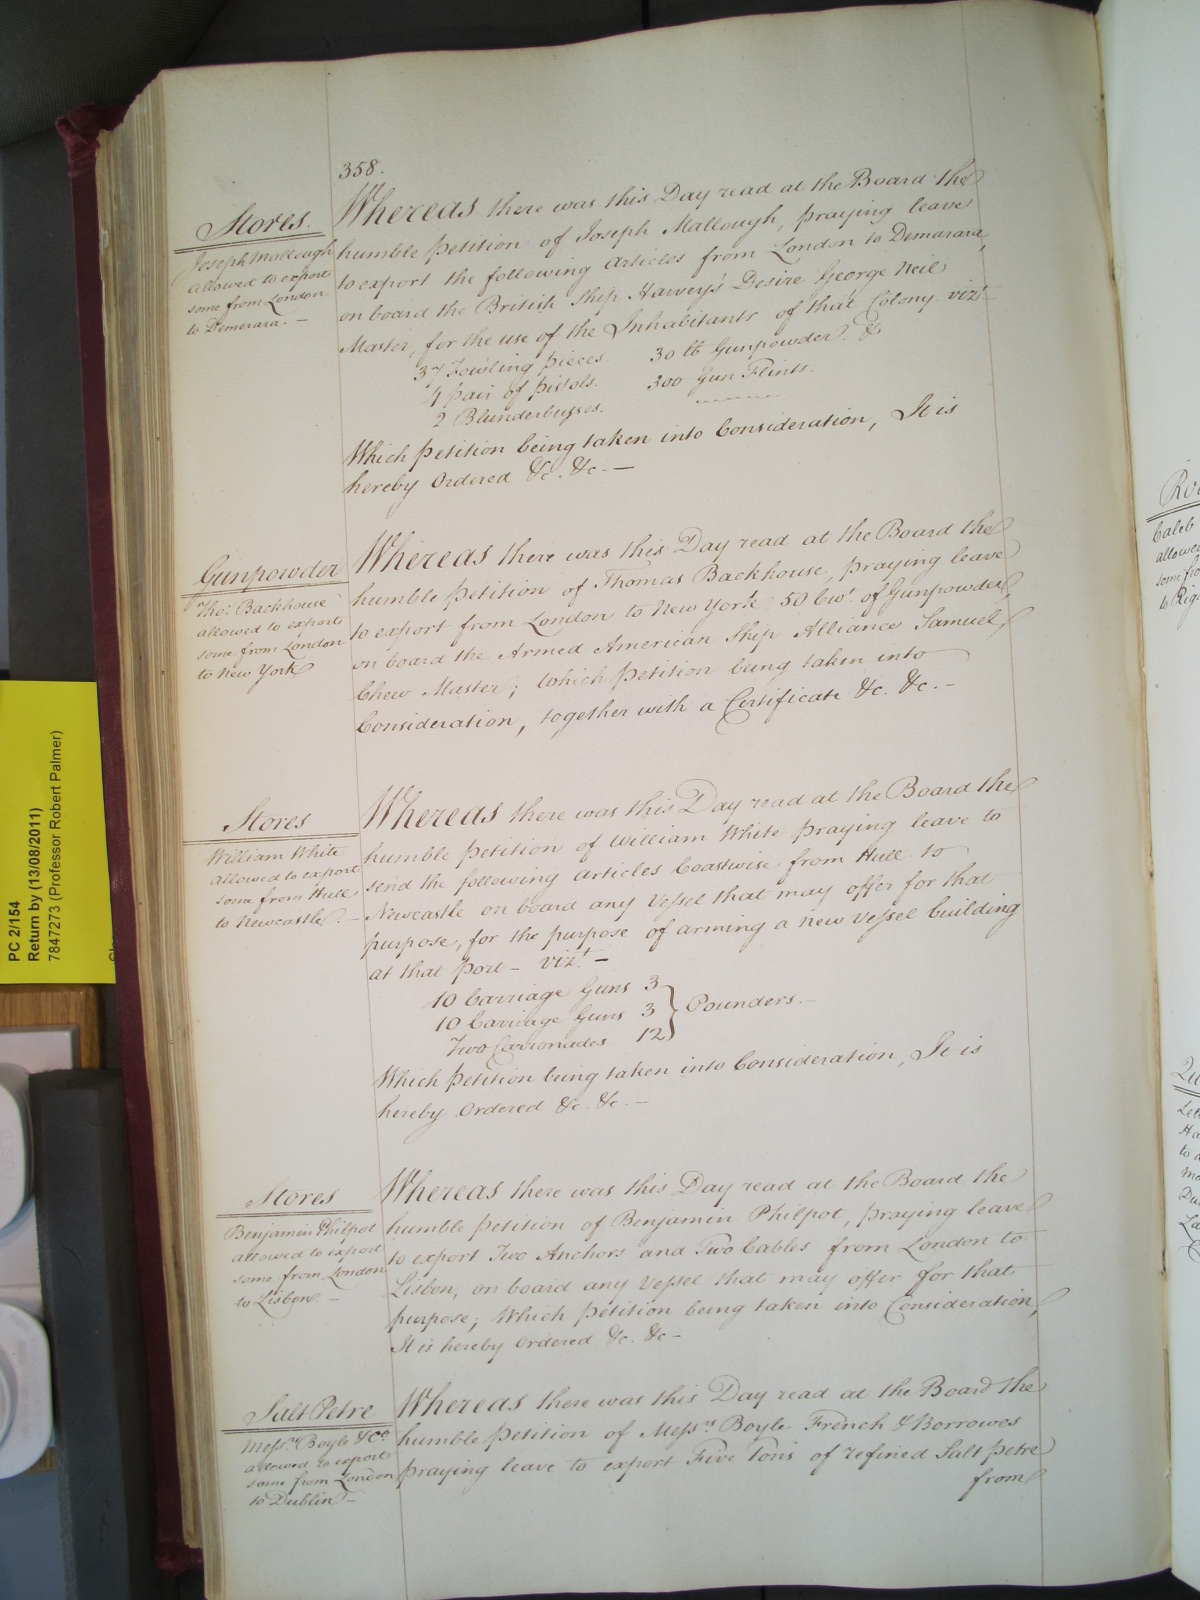 358.
Stores.
Joseph Mallough
allowed to export
some from London
to Demerara. —
Whereas there was this Day read at the Board the
humble Petition of Joseph Mallough, praying leave
to export the following Articles from London to Demarara,
on board the British Ship Harvey's Desire George Neil
Master, for the use of the Inhabitants of that Colony vizt.
37 Fowling Pieces. 30 lb Gunpowder. &
4 pair of Pistols. 300 Gun Flints.
2 Blunderbusses.
Which Petition being taken into Consideration, It is
hereby Ordered &c. &c. —
Gunpowder
Thos. Backhouse
allowed to export
some from London
to New York
Whereas there was this Day read at the Board the
humble Petition of Thomas Backhouse, praying leave
to export from London to New York 50 Cwt. of Gunpowder,
on board the Armed American Ship Alliance Samuel
Chew Master; Which Petition being taken into
Consideration, together with a Certificate &c. &c. —
Stores
William White
allowed to export
some from Hull
to Newcastle. —
Whereas there was this Day read at the Board the
humble Petition of William White praying leave to
send the following Articles Coastwise from Hull to
Newcastle on board any Vessel that may offer for that
purpose, for the purpose of arming a new Vessel building
at that Port — vizt. —
10 Carriage Guns 3
10 Carriage Guns 3 } Pounders. —
Two Carronades 12
Which Petition being taken into Consideration, It is
hereby Ordered &c. &c. —
Stores
Benjamin Philpot
allowed to export
some from London
to Lisbon. —
Whereas there was this Day read at the Board the
humble Petition of Benjamin Philpot, praying leave
to export Two Anchors and Two Cables from London to
Lisbon, on board any Vessel that may offer for that
purpose; Which Petition being taken into Consideration,
It is hereby Ordered &c. &c —
Salt Petre
Messrs. Boyle & Co.
allowed to export
some from London
to Dublin —
Whereas there was this Day read at the Board the
humble Petition of Messrs. Boyle French & Borrowes
praying leave to export Five Tons of refined Salt Petre
from
PC 2/154
Return by (13/08/2011)
7847273 (Professor Robert Palmer)
Caleb
allowed
some fro
to Riga